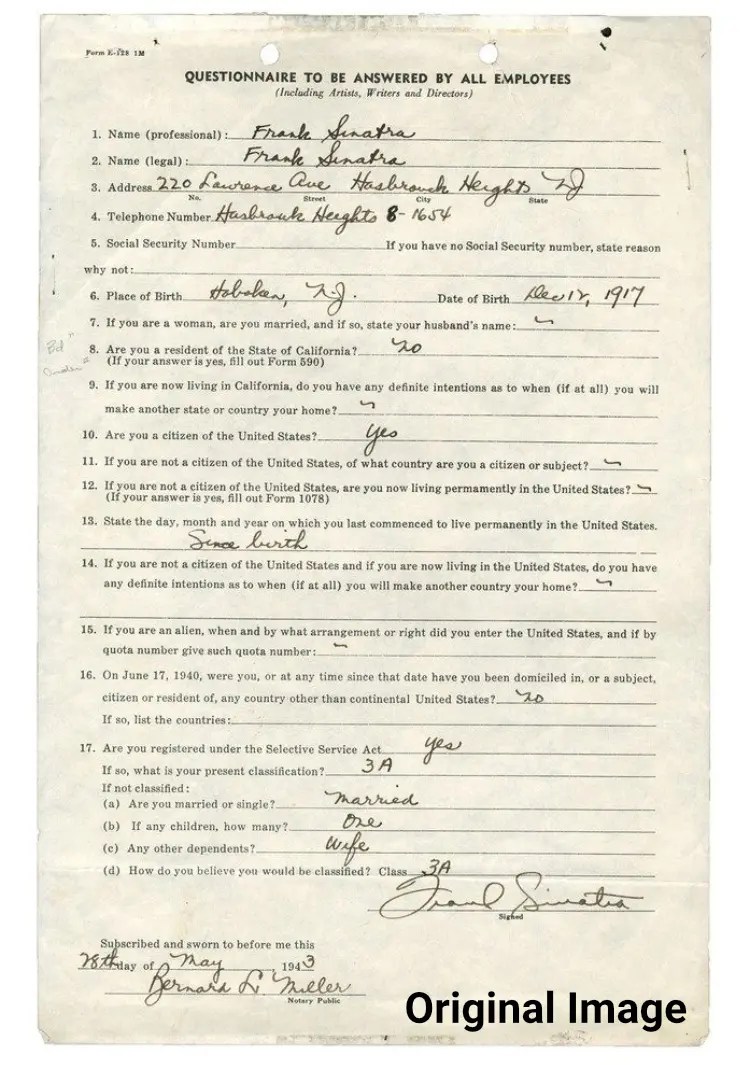 Form E-128 1M
QUESTIONNAIRE TO BE ANSWERED BY ALL EMPLOYEES
(Including Artists, Writers and Directors)
1. Name (professional): Frank Sinatra
2. Name (legal): Frank Sinatra
3. Address 220 Lawrence Ave Hasbrouck Heights NJ
No. Street City State
4. Telephone Number Hasbrouk Heights 8-1654
5. Social Security Number If you have no Social Security number, state reason
why not:
6. Place of Birth Hoboken, N.J. Date of Birth Dec 12, 1917
7. If you are a woman, are you married, and if so, state your husband's name:
8. Are you a resident of the State of California? No
(If your answer is yes, fill out Form 590)
9. If you are now living in California, do you have any definite intentions as to when (if at all) you will
make another state or country your home?
10. Are you a citizen of the United States? Yes
11. If you are not a citizen of the United States, of what country are you a citizen or subject?
12. If you are not a citizen of the United States, are you now living permamently in the United States?
(If your answer is yes, fill out Form 1078)
13. State the day, month and year on which you last commenced to live permanently in the United States.
Since birth
14. If you are not a citizen of the United States and if you are now living in the United States, do you have
any definite intentions as to when (if at all) you will make another country your home?
15. If you are an alien, when and by what arrangement or right did you enter the United States, and if by
quota number give such quota number:
16. On June 17, 1940, were you, or at any time since that date have you been domiciled in, or a subject,
citizen or resident of, any country other than continental United States? No
If so, list the countries:
17. Are you registered under the Selective Service Act Yes
If so, what is your present classification? 3A
If not classified:
(a) Are you married or single? Married
(b) If any children, how many? One
(c) Any other dependents? Wife
(d) How do you believe you would be classified? Class 3A
Frank Sinatra
Signed
Subscribed and sworn to before me this
28th day of May 1943
Bernard L. Miller
Notary Public
Original Image